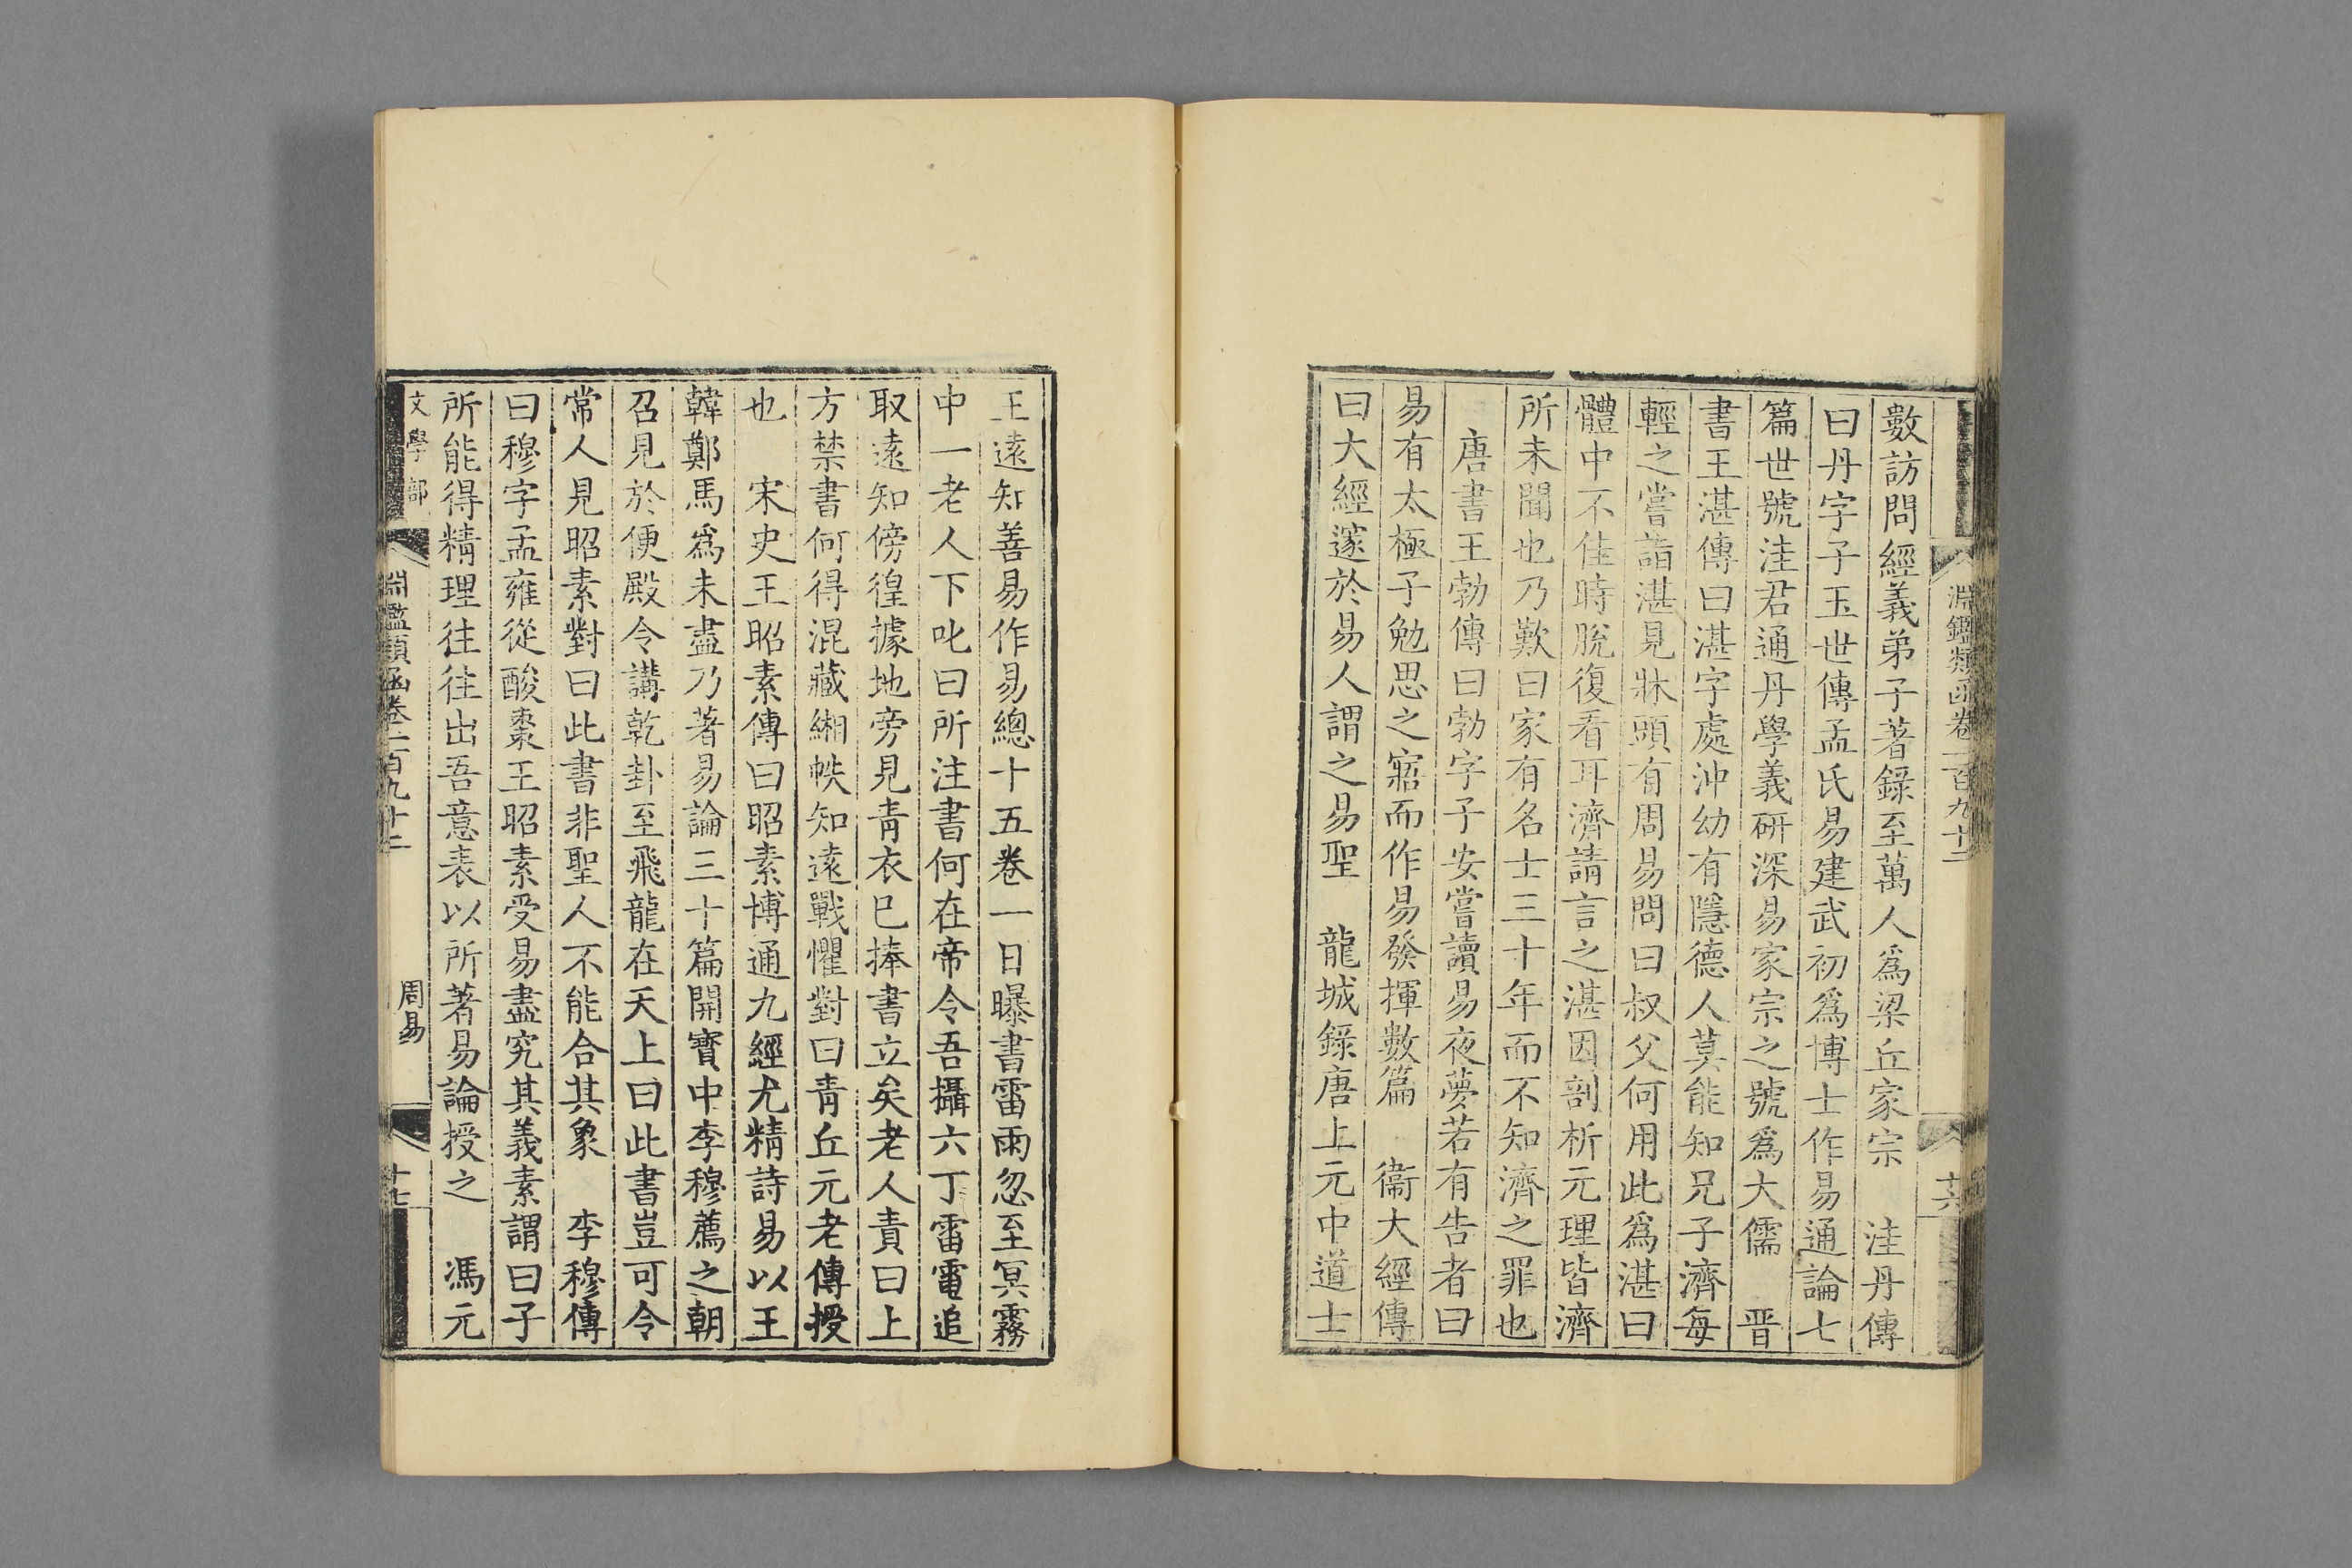 淵鑑類函卷一百九十二
十六
數訪問經義弟子著錄至萬人爲梁丘家宗　洼丹傳
曰丹字子玉世傳孟氏易建武初爲博士作易通論七
篇世號洼君通丹學義研深易家宗之號爲大儒　晋
書王湛傳曰湛字處沖幼有隱德人莫能知兄子濟每
輕之嘗詣湛見牀頭有周易問曰叔父何用此爲湛曰
體中不佳時脫復看耳濟請言之湛因剖析元理皆濟
所未聞也乃歎曰家有名士三十年而不知濟之罪也
唐書王勃傳曰勃字子安嘗讀易夜夢若有告者曰
易有太極子勉思之寤而作易發揮數篇　衞大經傳
曰大經邃於易人謂之易聖　龍城錄唐上元中道士
王遠知善易作易總十五卷一日曝書雷雨忽至冥霧
中一老人下叱曰所注書何在帝令吾攝六丁雷電追
取遠知傍徨據地旁見靑衣巳捧書立矣老人責曰上
方禁書何得混藏緗帙知遠戰懼對曰靑丘元老傳授
也　宋史王昭素傳曰昭素博通九經尤精詩易以王
韓鄭馬爲未盡乃著易論三十篇開寶中李穆薦之朝
召見於便殿令講乾卦至飛龍在天上曰此書豈可令
常人見昭素對曰此書非聖人不能合其象　李穆傳
曰穆字孟雍從酸棗王昭素受易盡究其義素謂曰子
所能得精理往往出吾意表以所著易論授之　馮元
文學部
淵鑑類函卷一百九十二
周易
十七